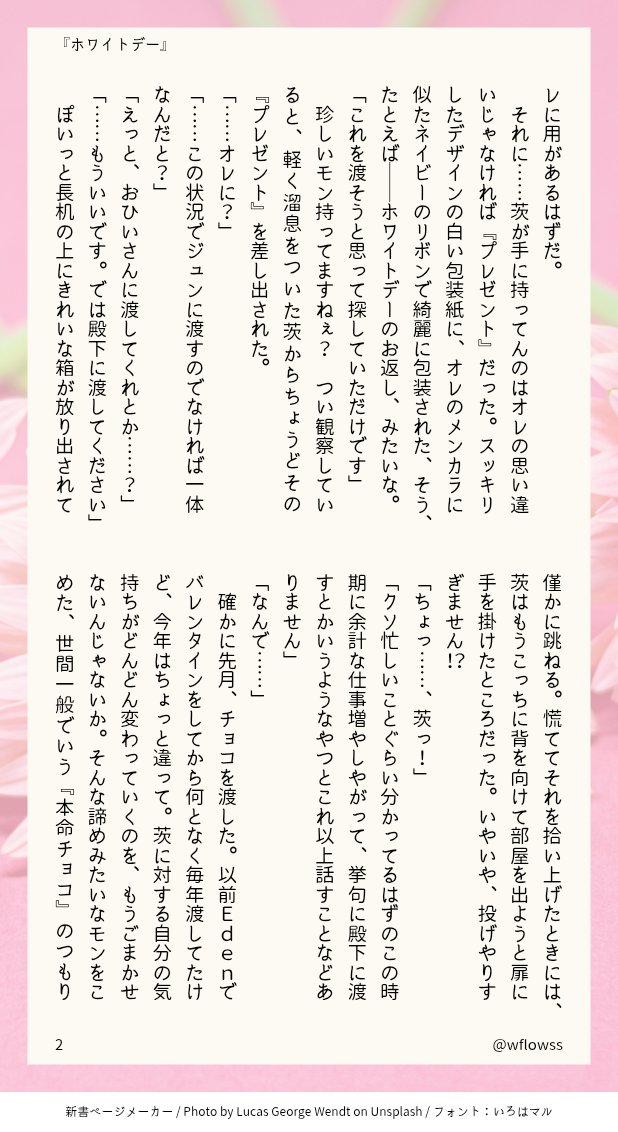 『ホワイトデー』
レに用があるはずだ。
それに……茨が手に持ってんのはオレの思い違
いじゃなければ『プレゼント』だった。スッキリ
したデザインの白い包装紙に、オレのメンカラに
似たネイビーのリボンで綺麗に包装された、そう、
たとえば――ホワイトデーのお返し、みたいな。
「これを渡そうと思って探していただけです」
珍しいモン持ってますねぇ？　つい観察してい
ると、軽く溜息をついた茨からちょうどその
『プレゼント』を差し出された。
「……オレに？」
「……この状況でジュンに渡すのでなければ一体
なんだと？」
「えっと、おひいさんに渡してくれとか……？」
「……もういいです。では殿下に渡してください」
ぽいっと長机の上にきれいな箱が放り出されて
僅かに跳ねる。慌ててそれを拾い上げたときには、
茨はもうこっちに背を向けて部屋を出ようと扉に
手を掛けたところだった。いやいや、投げやりす
ぎません!?
「ちょっ……、茨っ！」
「クソ忙しいことぐらい分かってるはずのこの時
期に余計な仕事増やしやがって、挙句に殿下に渡
すとかいうようなやつとこれ以上話すことなどあ
りません」
「なんで……」
確かに先月、チョコを渡した。以前Ｅｄｅｎで
バレンタインをしてから何となく毎年渡してたけ
ど、今年はちょっと違って。茨に対する自分の気
持ちがどんどん変わっていくのを、もうごまかせ
ないんじゃないか。そんな諦めみたいなモンをこ
めた、世間一般でいう『本命チョコ』のつもり
2
@wflowss
新書ページメーカー / Photo by Lucas George Wendt on Unsplash / フォント：いろはマル